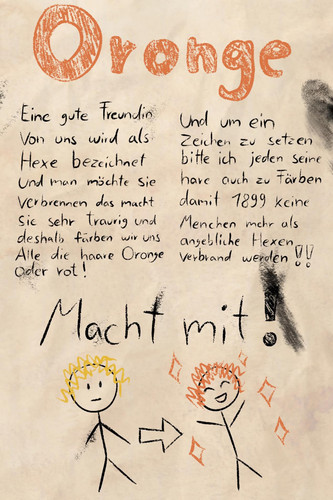 Oronge
Eine gute Freundin
Von uns wird als
Hexe bezeichnet
und man möchte sie
verbrennen das macht
Sie sehr traurig und
deshalb färben wir uns
Alle die haare Oronge
oder rot!
Und um ein
Zeichen zu setzen
bitte ich jeden seine
hare auch zu Färben
damit 1899 keine
Menchen mehr als
angebliche Hexen
verbrand werden!!
Macht mit!